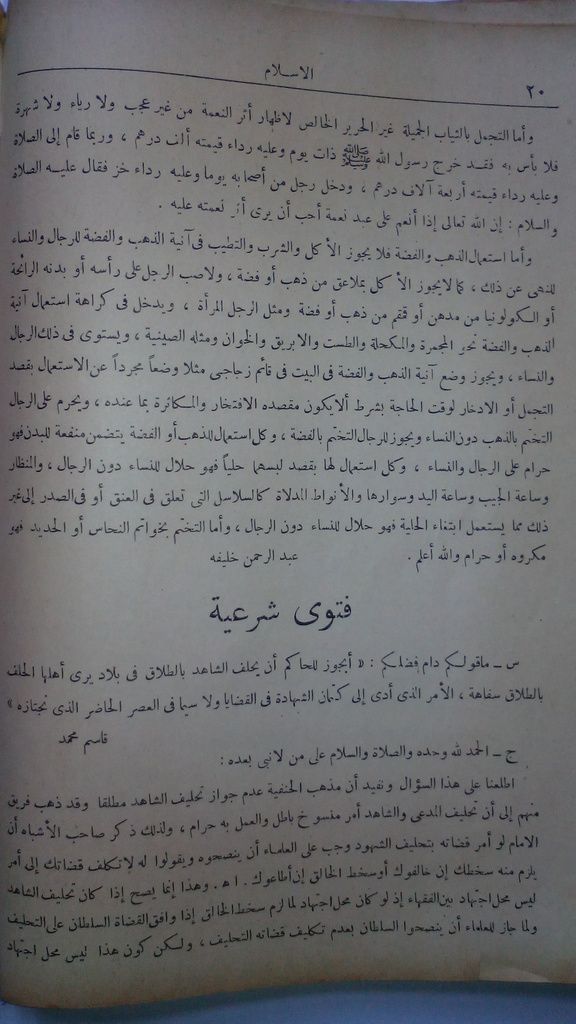 ٢٠
الاسلام
وأما التجمل بالثياب الجميلة غير الحرير الخالص لاظهار أثر النعمة من غير عجب ولا رياء ولا شهرة
فلا بأس به فقد خرج رسول الله ﷺ ذات يوم وعليه رداء قيمته ألف درهم ، وربما قام إلى الصلاة
وعليه رداء قيمته أربعة آلاف درهم ، ودخل رجل من أصحابه يوما وعليه رداء خز فقال عليه الصلاة
والسلام : إن الله تعالى إذا أنعم على عبد نعمة أحب أن يرى أثر نعمته عليه .
وأما استعمال الذهب والفضة فلا يجوز الأكل والشرب والتطيب فى آنية الذهب والفضة للرجال والنساء
للنهى عن ذلك ، كما لا يجوز الأكل بملاعق من ذهب أو فضة ، ولا صب الرجل على رأسه أو بدنه الرائحة
أو الكولونيا من مدهن أو قمقم من ذهب أو فضة ومثل الرجل المرأة ، ويدخل فى كراهة استعمال آنية
الذهب والفضة نحو المجمرة والمكحلة والطست والابريق والخوان ومثله الصينية ، ويستوى فى ذلك الرجال
والنساء ، ويجوز وضع آنية الذهب والفضة فى البيت فى قائم زجاجى مثلا وضعاً مجرداً عن الاستعمال بقصد
التجمل أو الادخار لوقت الحاجة بشرط ألا يكون مقصده الافتخار والمكاثرة بما عنده ، ويحرم على الرجال
التختم بالذهب دون النساء ويجوز للرجال التختم بالفضة ، وكل استعمال للذهب أو الفضة يتضمن منفعة للبدن فهو
حرام على الرجال والنساء ، وكل استعمال لها بقصد لبسهما حلياً فهو حلال للنساء دون الرجال ، والمنظار
وساعة الجيب وساعة اليد وسوارها والأنواط المدلاة كالسلاسل التى تعلق فى العنق أو فى الصدر إلى غير
ذلك مما يستعمل ابتغاء الحلية فهو حلال للنساء دون الرجال ، وأما التختم بخواتم النحاس أو الحديد فهو
مكروه أو حرام والله أعلم . عبد الرحمن خليفه
فتوى شرعية
س ــ ماقولكم دام فضلكم : « أيجوز للحاكم أن يحلف الشاهد بالطلاق فى بلاد يرى أهلها الحلف
بالطلاق سفاهة ، الأمر الذى أدى إلى كتمان الشهادة فى القضايا ولا سيما فى العصر الحاضر الذى نجتازه »
قاسم محمد
ج ــ الحمد لله وحده والصلاة والسلام على من لا نبى بعده :
اطلعنا على هذا السؤال ونفيد أن مذهب الحنفية عدم جواز تحليف الشاهد مطلقا وقد ذهب فريق
منهم إلى أن تحليف المدعى والشاهد أمر منسوخ باطل والعمل به حرام ، ولذلك ذكر صاحب الأشباه أن
الامام لو أمر قضاته بتحليف الشهود وجب على العلماء أن ينصحوه ويقولوا له لا تكلف قضاتك إلى أمر
يلزم منه سخطك إن خالفوك أو سخط الخالق إن أطاعوك . ا هـ . وهذا إنما يصح إذا كان تحليف الشاهد
ليس محل اجتهاد بين الفقهاء إذ لو كان محل اجتهاد لما لزم سخط الخالق إذا وافق القضاة السلطان على التحليف
ولما جاز للعلماء أن ينصحوا السلطان بعدم تكليف قضاته التحليف ، ولكن كون هذا ليس محل اجتهاد